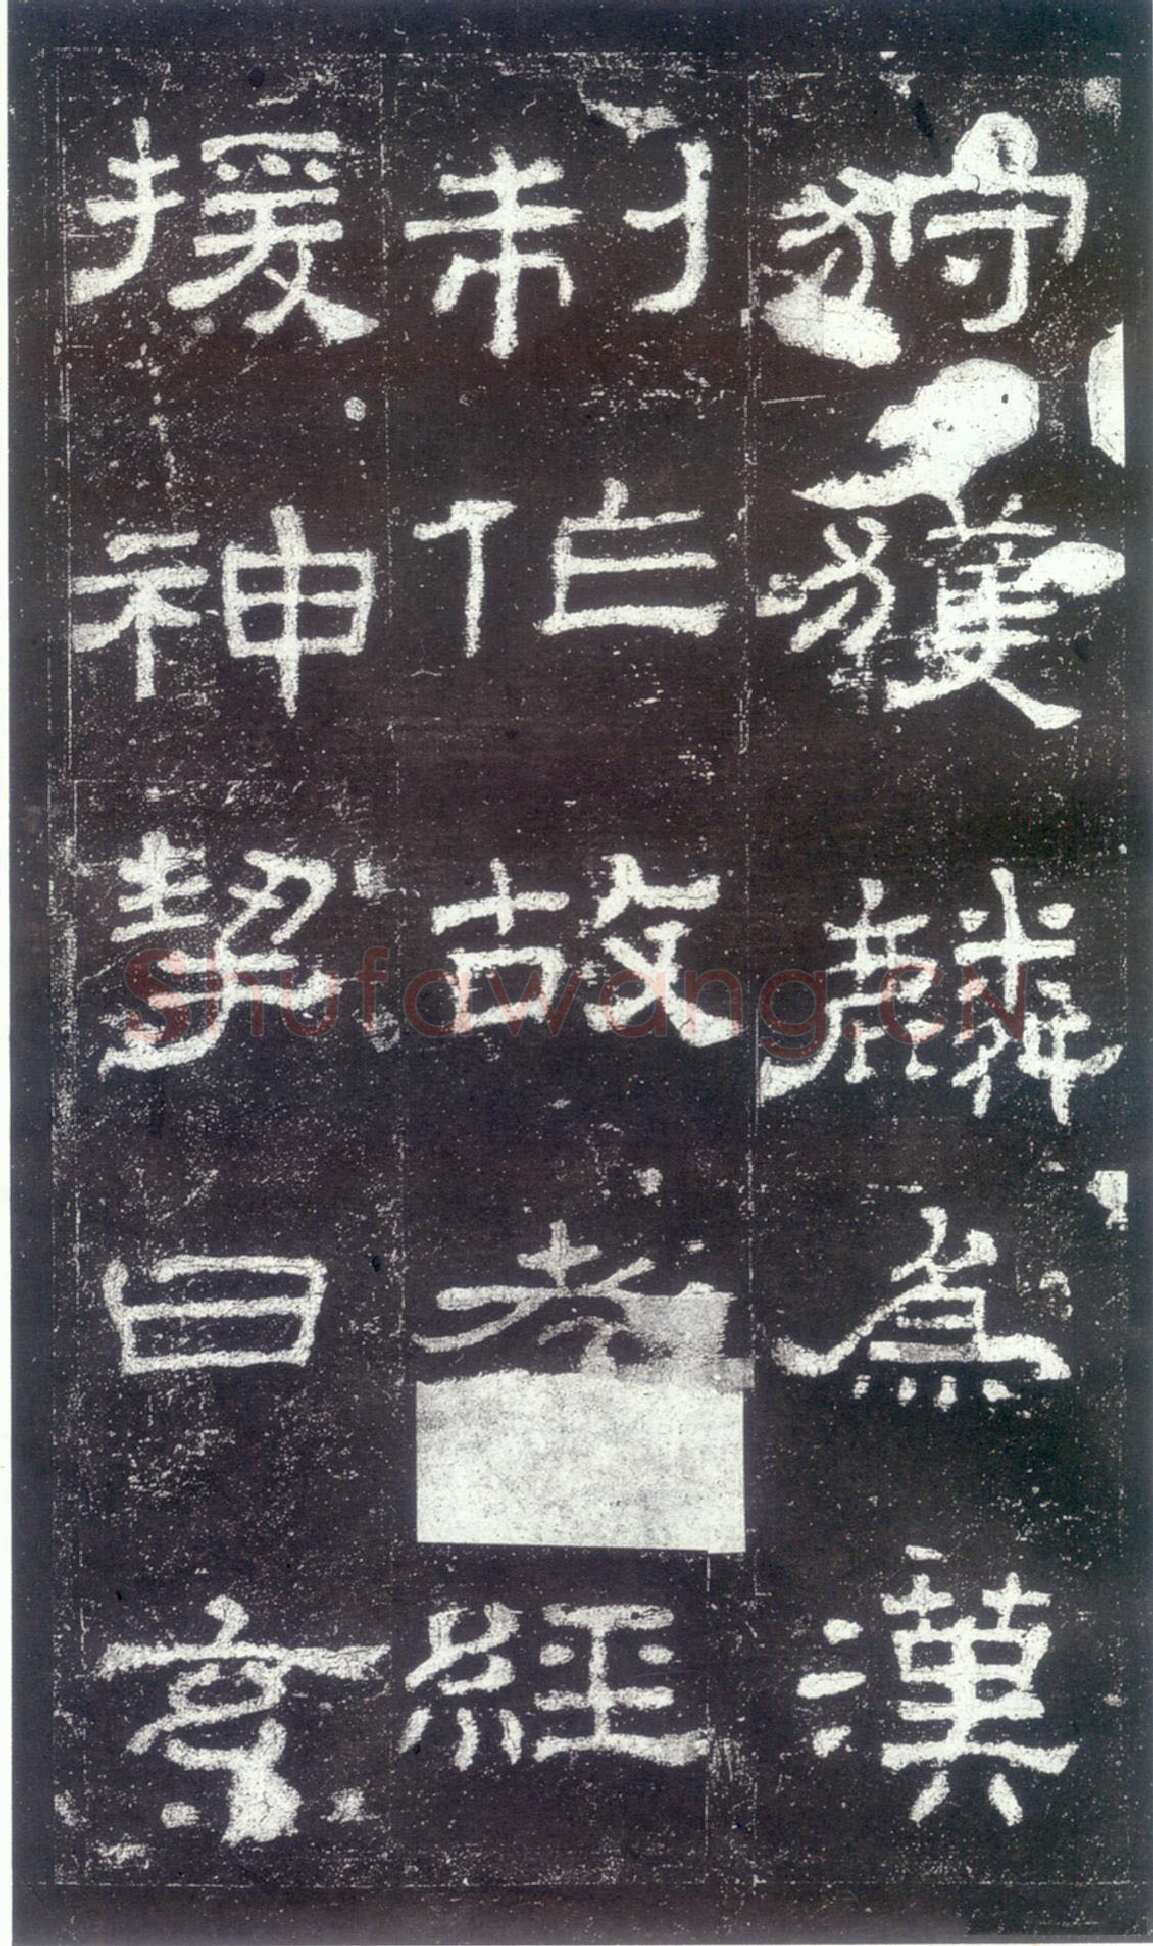 狩獲麟爲漢
制作故孝經
援神挈曰玄
Shufawang.CN